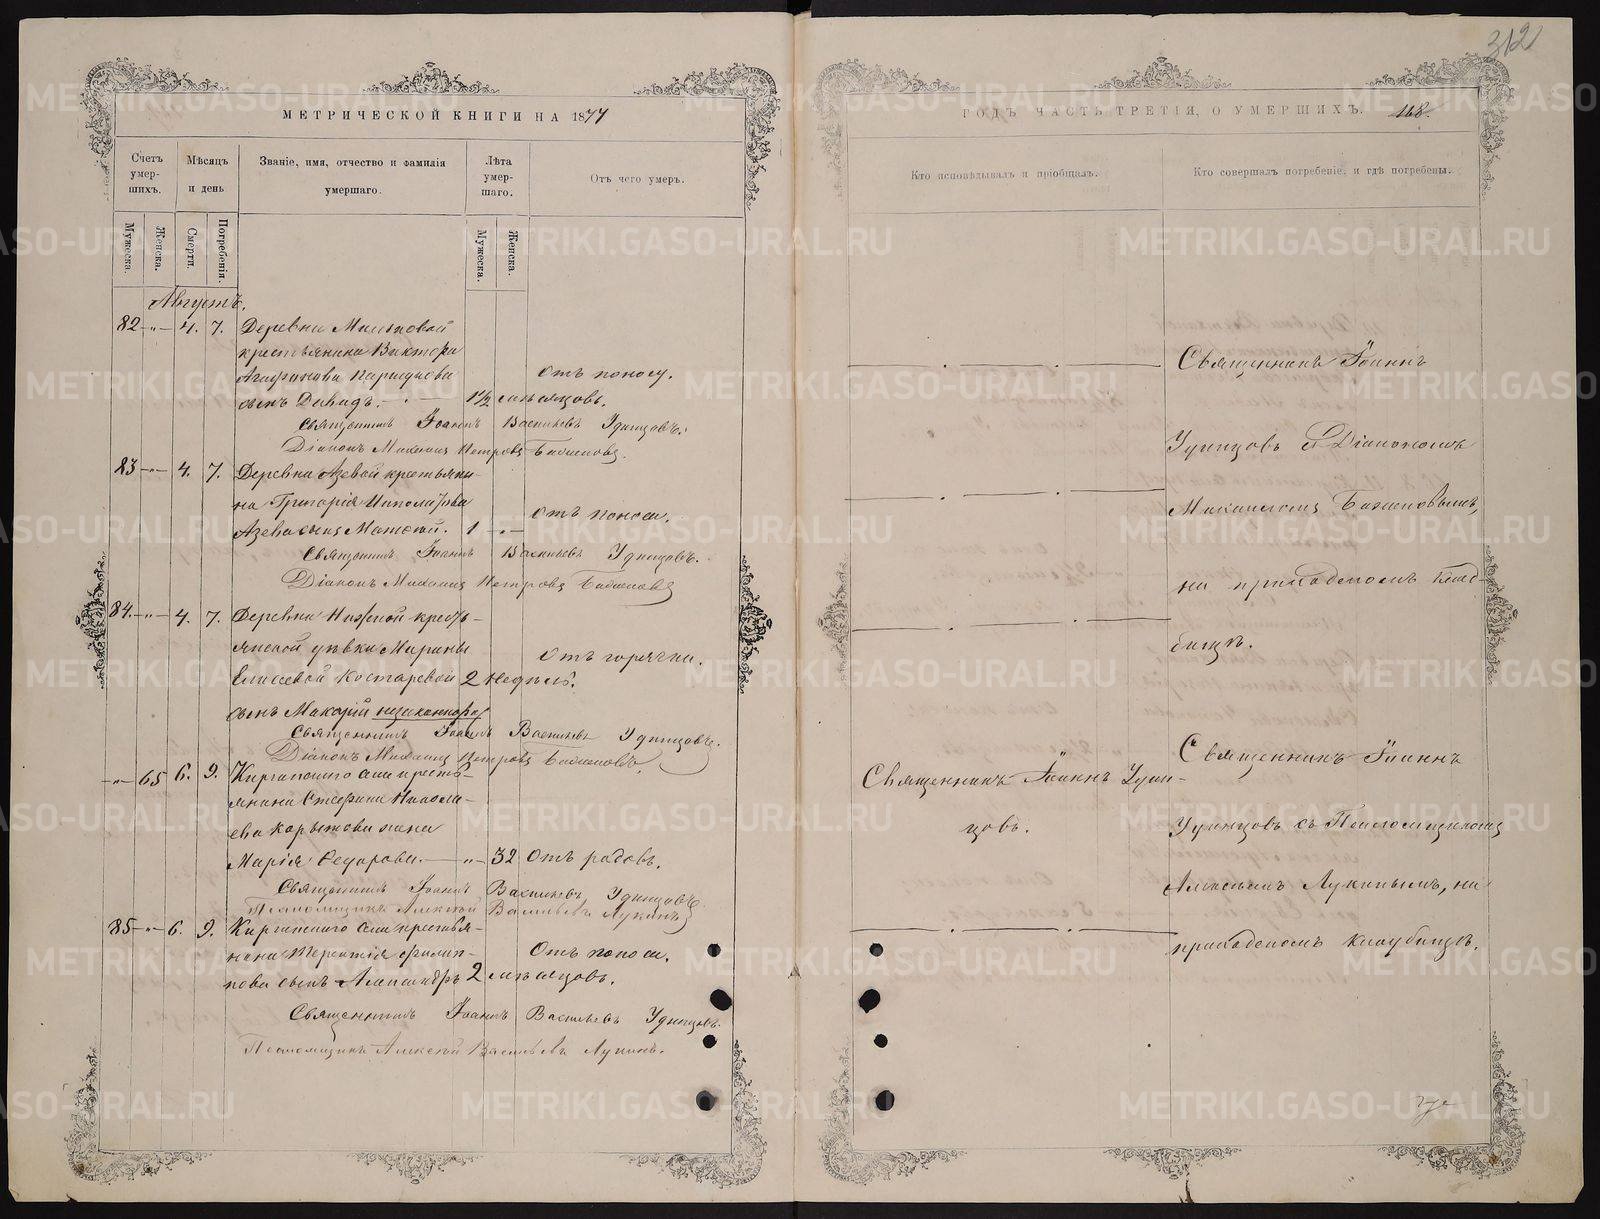 312
МЕТРИЧЕСКОЙ КНИГИ НА 1877
ГОДЪ ЧАСТЬ ТРЕТІЯ, О УМЕРШИХЪ. 168.
Счетъ умер-шихъ.
Мѣсяцъ и день
Званіе, имя, отчество и фамилія умершаго.
Лѣта умер-шаго.
Отъ чего умеръ.
Кто исповѣдывалъ и пріобщалъ.
Кто совершалъ погребеніе, и гдѣ погребены.
Мужеска.
Женска.
Смерти.
Погребенія.
Мужеска.
Женска.
Августъ.
82 -„- 4. 7. Деревни
крестьянина Виктора
сынъ Давидъ. 1½ мѣсяцовъ.
Отъ поносу.
Священникъ Іоаннъ Васильевъ Удинцовъ.
Діаконъ Михаилъ Петровъ
83 -„- 4. 7. Деревни Азевой крестьяни-
на Григорія
Азева сынъ 1 -„-
Отъ поноса.
Священникъ Іоаннъ Васильевъ Удинцовъ.
Діаконъ Михаилъ Петровъ
84. -„- 4. 7. Деревни Нижней кресть-
янской дѣвки Марины
Елисеевой Костаревой 2 недѣль.
сынъ Макарій незаконнорож
Отъ горячки.
Священникъ Іоаннъ Васильевъ Удинцовъ.
Діаконъ Михаилъ Петровъ
-„- 65 6. 9. Киргинскаго села кресть-
янина Стефана Никола-
ева жена
Марія Федорова. -„- 32 Отъ родовъ.
Священникъ Іоаннъ Васильевъ Удинцовъ.
Псаломщикъ Алексѣй Васильевъ Лукинъ
85 -„- 6. 9. Киргинскаго села крестья-
нина Терентія Филип-
пова сынъ Александръ 2 мѣсяцовъ.
Отъ поноса.
Священникъ Іоаннъ Васильевъ Удинцовъ.
Псаломщикъ Алексѣй Васильевъ Лукинъ.
Священникъ Іоаннъ
Удинцовъ съ Діакономъ
Михаиломъ
на приходскомъ клад-
бищѣ.
Священникъ Іоаннъ Удин-
цовъ.
Священникъ Іоаннъ
Удинцовъ съ Псаломщикомъ
Алексѣемъ Лукинымъ, на
приходскомъ кладбищѣ.
METRIKI.GASO-URAL.RU